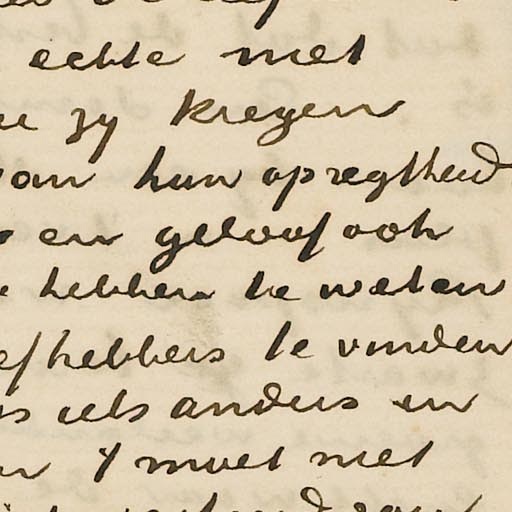 echte met
zy kregen
van hun opregtheid
en geloof ook
hebben te weten
liefhebbers te vinden
is iets anders en
't moet met